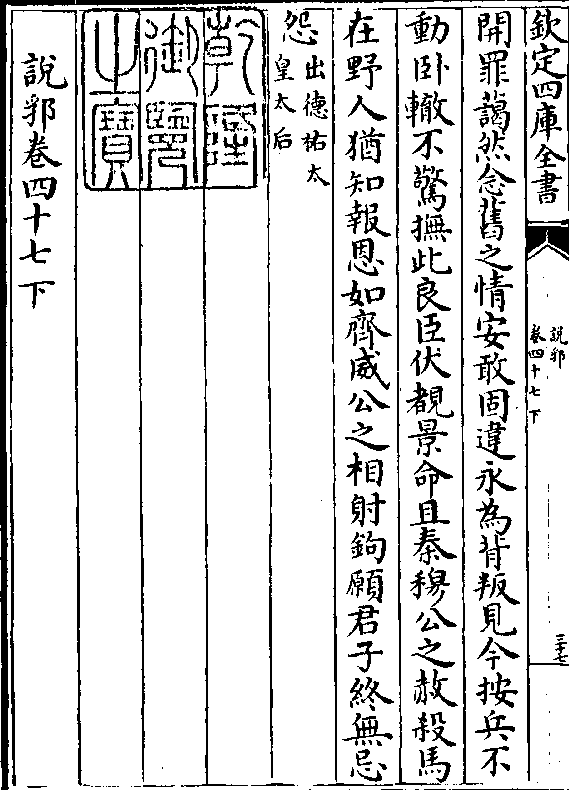 欽定四庫全書
說郛
卷四十七下
三十七
開罪藹然念舊之情安敢固違永為背叛見今按兵不
動卧轍不驚撫此良臣伏覩景命且秦穆公之赦殺馬
在野人猶知報恩如齊威公之相射鉤願君子終無忌
怨出德祐太
皇太后
乾隆
御覽
之寶
說郛卷四十七下